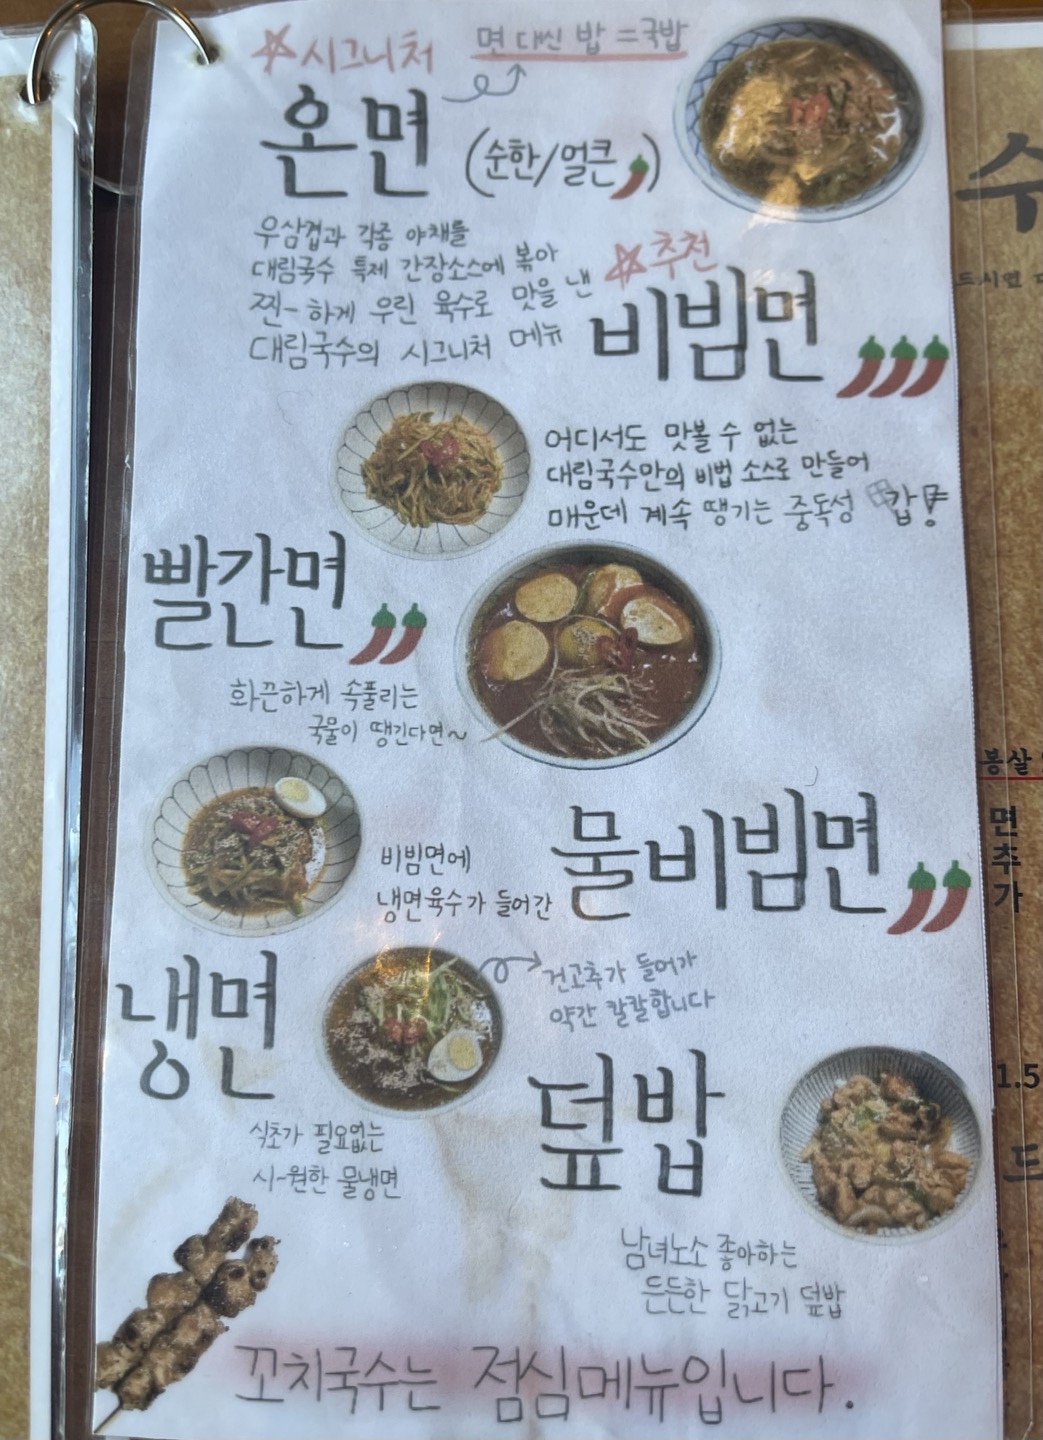 시그니처
면 대신 밥 = 국밥
온면 (순한/얼큰)
우삼겹과 각종 야채를
대림국수 특제 간장소스에 볶아
찐~하게 우린 육수로 맛을 낸
대림국수의 시그니처 메뉴
추천
비빔면
어디서도 맛볼 수 없는
대림국수만의 비법 소스로 만들어
매운데 계속 땡기는 중독성 갑!
빨간면
화끈하게 속풀리는
국물이 땡긴다면~
물비빔면
비빔면에
냉면육수가 들어간
냉면
건고추가 들어가
약간 칼칼합니다
식초가 필요없는
시-원한 물냉면
덮밥
남녀노소 좋아하는
든든한 닭고기 덮밥
꼬치국수는 점심메뉴입니다.
수
면
추
가
1.5